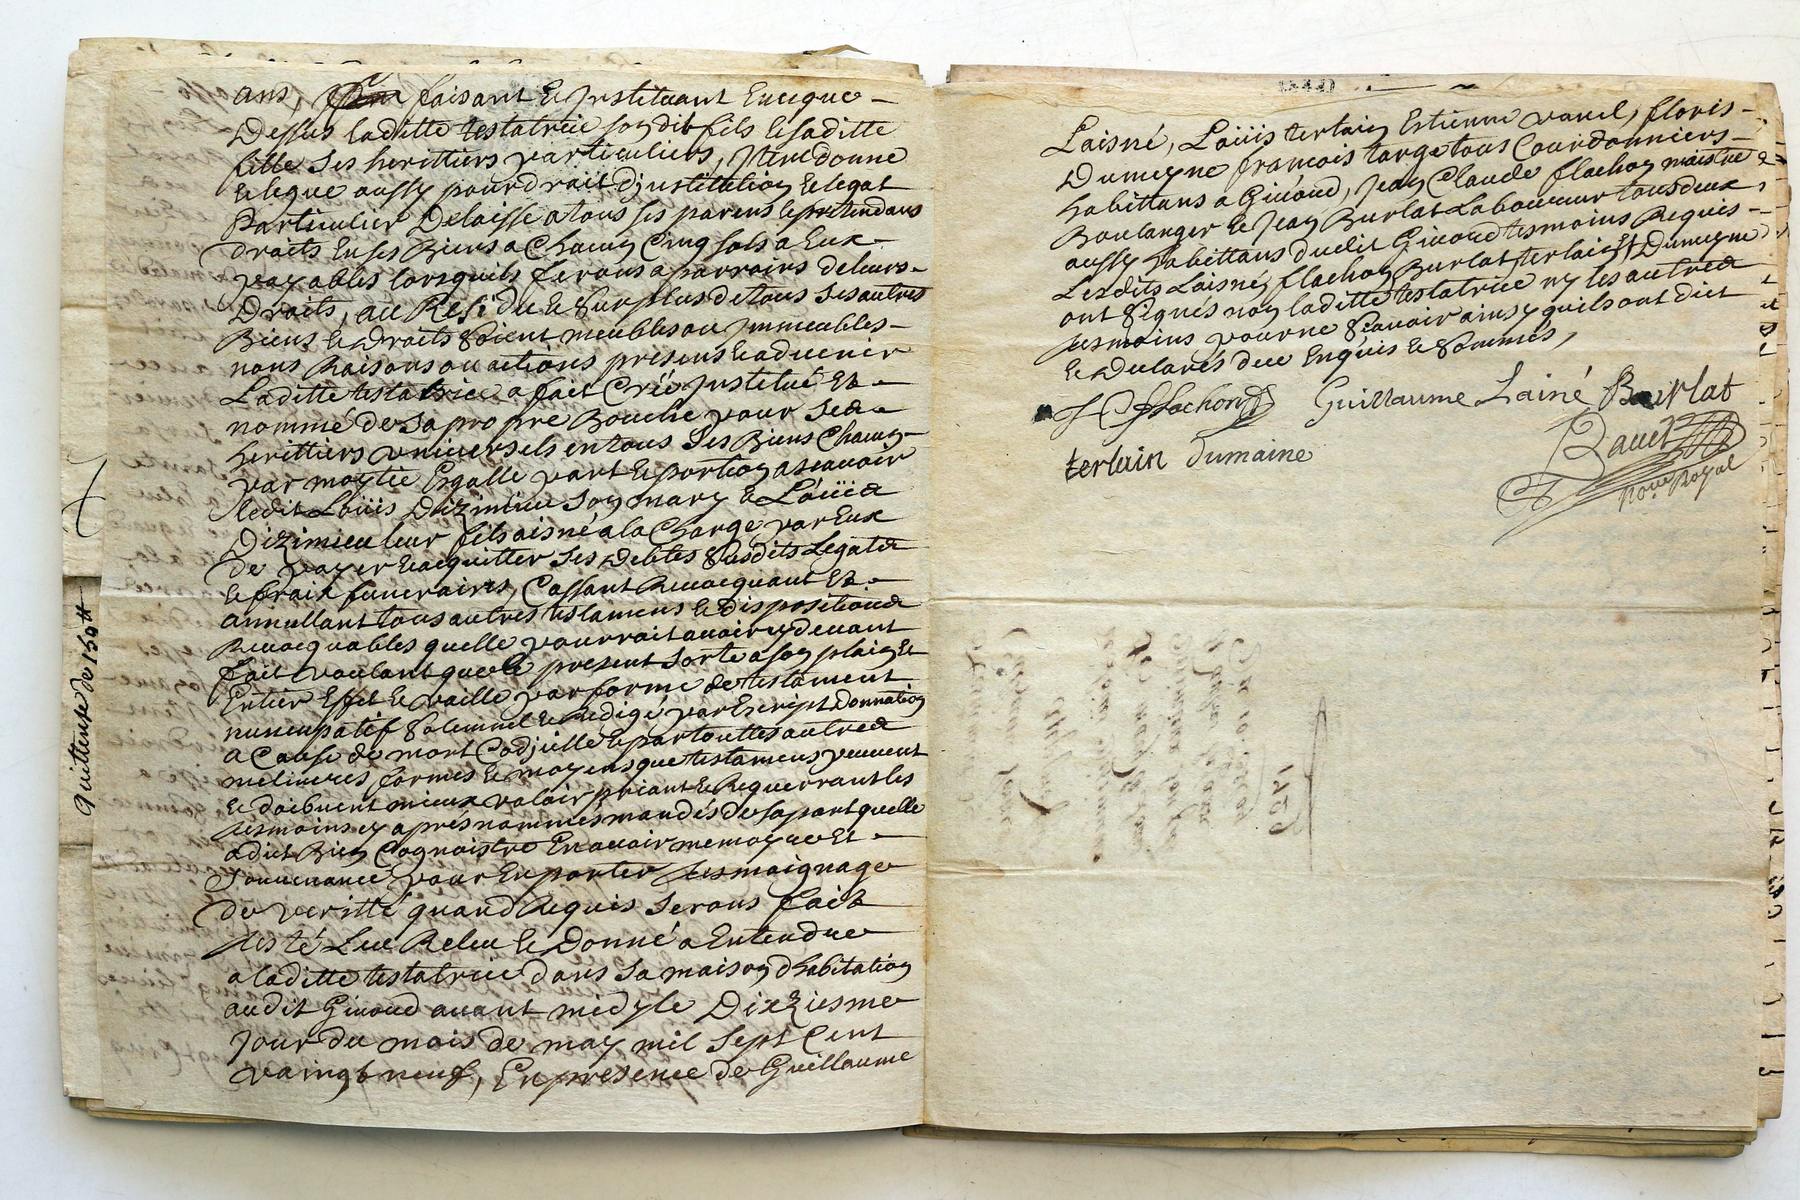 ans, faisant & Jnstituant Encequo
Dessus laditte testatrice son dit fils & saditte
fille ses herittiers particuliers, Jtem donne
& legue aussy pour droit d'jnstitution & legat
Particulier Delaisse a tous ses parens & pretendans
droits En ses Biens a Chacun Cinq sols a Eux
payables lorsquils feronts apparroirs de leurs
Droits, au Residu & surplus de tous ses autres
Biens & Droits soient meubles ou Jmmeubles
noms Raisons ou actions presens & aduenir
Laditte testatrice a fait Créé Jnstitué Et
nommé de sa propre Bouche pour ses
herittiers vniuersels en tous ses Biens Chacun
par moytié Egalle part & portion a scauoir
ledit Loüis Dizimieu son mary & Loüis
Dizimieu leur fils aisné a la Charge par Eux
de payer & acquitter ses Debtes susdits Legats
& fraix funeraires, Cassant Reuocquant Et
annullant tous autres testamens & dispositions
Reuocquables quelle pourrait auoir cy deuant
fait voulant que le present sorte a son plain Et
Entier Effet & vaille par forme de testament
nuncupatif solemnel & redigé par Escript Donnation
a Cause de mort Codjcille & par touttes autres
meilieures formes & moyens que testamens peuuent
& doibuent mieux valoir priant & Requerrant les
tesmoins cy apres nommes mandés de sa part quelle
a dict Bien Cognoistre En auoir memoyre Et
souuenance pour En porter tesmoignage
de veritté quand Requis serons fait
testé Leu Releu & Donné a Entendre
a laditte testatrice dans sa maison d'habitation
audit Giuord auant midy le Dixziesme
Jour du mois de may mil sept Cent
vaingt neuf, En presence de Guillaume
quittense de 150 tt
Laisné, Loüis terlain Estienne parel, floris
Dumeyne francois targe tous Courdonniers
habittans a Giuord, Jean Claude flachon maistre
Boulanger & Jean Burlat Laboureur tous deux
aussy habittans dudit Giuord tesmoins Requis
Lesdits Laisné, flachon Burlat terlain & Dumeyne
ont signés non laditte testatrice ny les autres
tesmoins pour ne scauoir ainsy quils ont dict
& declarés de ce Enquis & sommés,
J C fflachon Guillaume Lainé Burlat
terlain dumaine
Bauet
no.re Royal